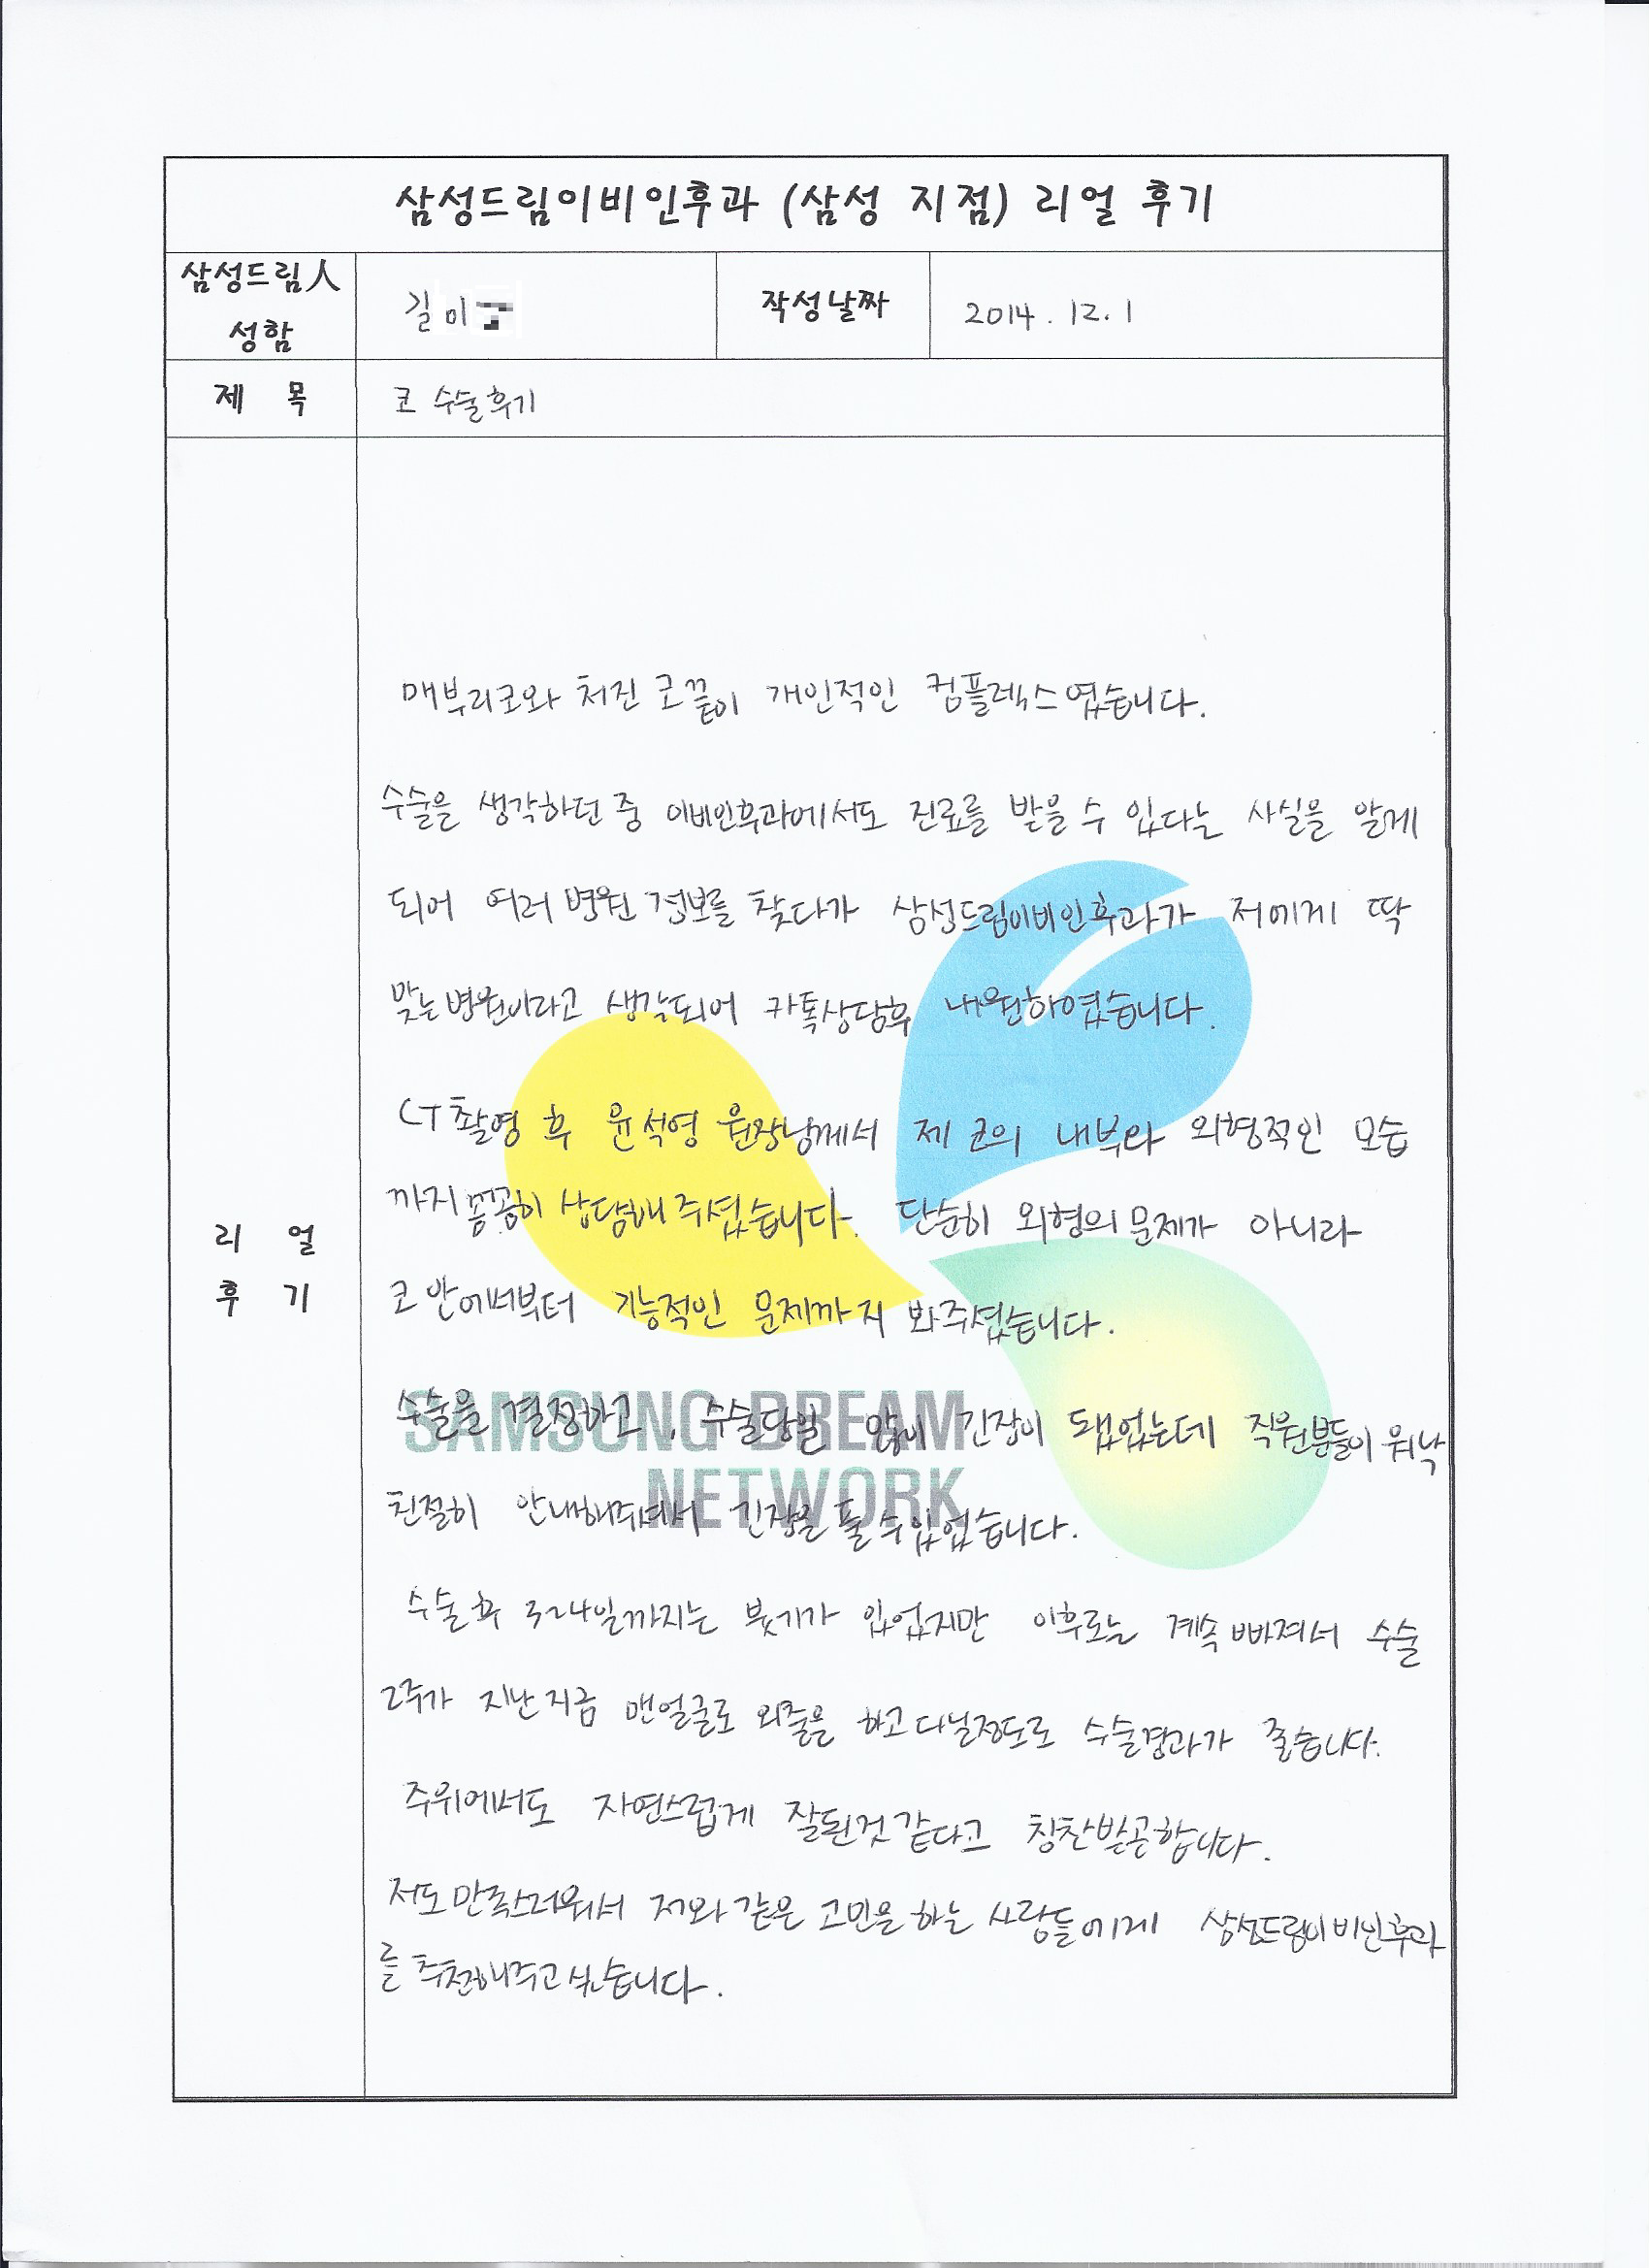 삼성드림이비인후과 (삼성 지점) 리얼 후기
삼성드림人 성함
길미
작성날짜
2014. 12. 1
제 목
코 수술후기
리 얼
후 기
매부리코와 처진 코끝이 개인적인 컴플렉스였습니다.
수술을 생각하던 중 이비인후과에서도 진료를 받을 수 있다는 사실을 알게
되어 여러 병원 정보를 찾다가 삼성드림이비인후과가 저에게 딱
맞는 병원이라고 생각되어 카톡상담후 내원하였습니다.
CT 촬영 후 윤석영 원장님께서 제 코의 내부와 외형적인 모습
까지 꼼꼼히 상담해 주셨습니다. 단순히 외형의 문제가 아니라
코 안에서부터 기능적인 문제까지 봐주셨습니다.
수술을 결정하고, 수술당일 많이 긴장이 됐었는데 직원분들이 워낙
친절히 안내해주셔서 긴장을 풀 수 있었습니다.
수술 후 3~4일까지는 붓기가 있었지만 이후로는 계속 빠져서 수술
2주가 지난 지금 맨얼굴로 외출을 하고 다닐정도로 수술경과가 좋습니다.
주위에서도 자연스럽게 잘된것 같다고 칭찬받곤합니다.
저도 만족스러워서 저와 같은 고민을 하는 사람들에게 삼성드림이비인후과
를 추천해주고 싶습니다.
SAMSUNG DREAM
NETWORK